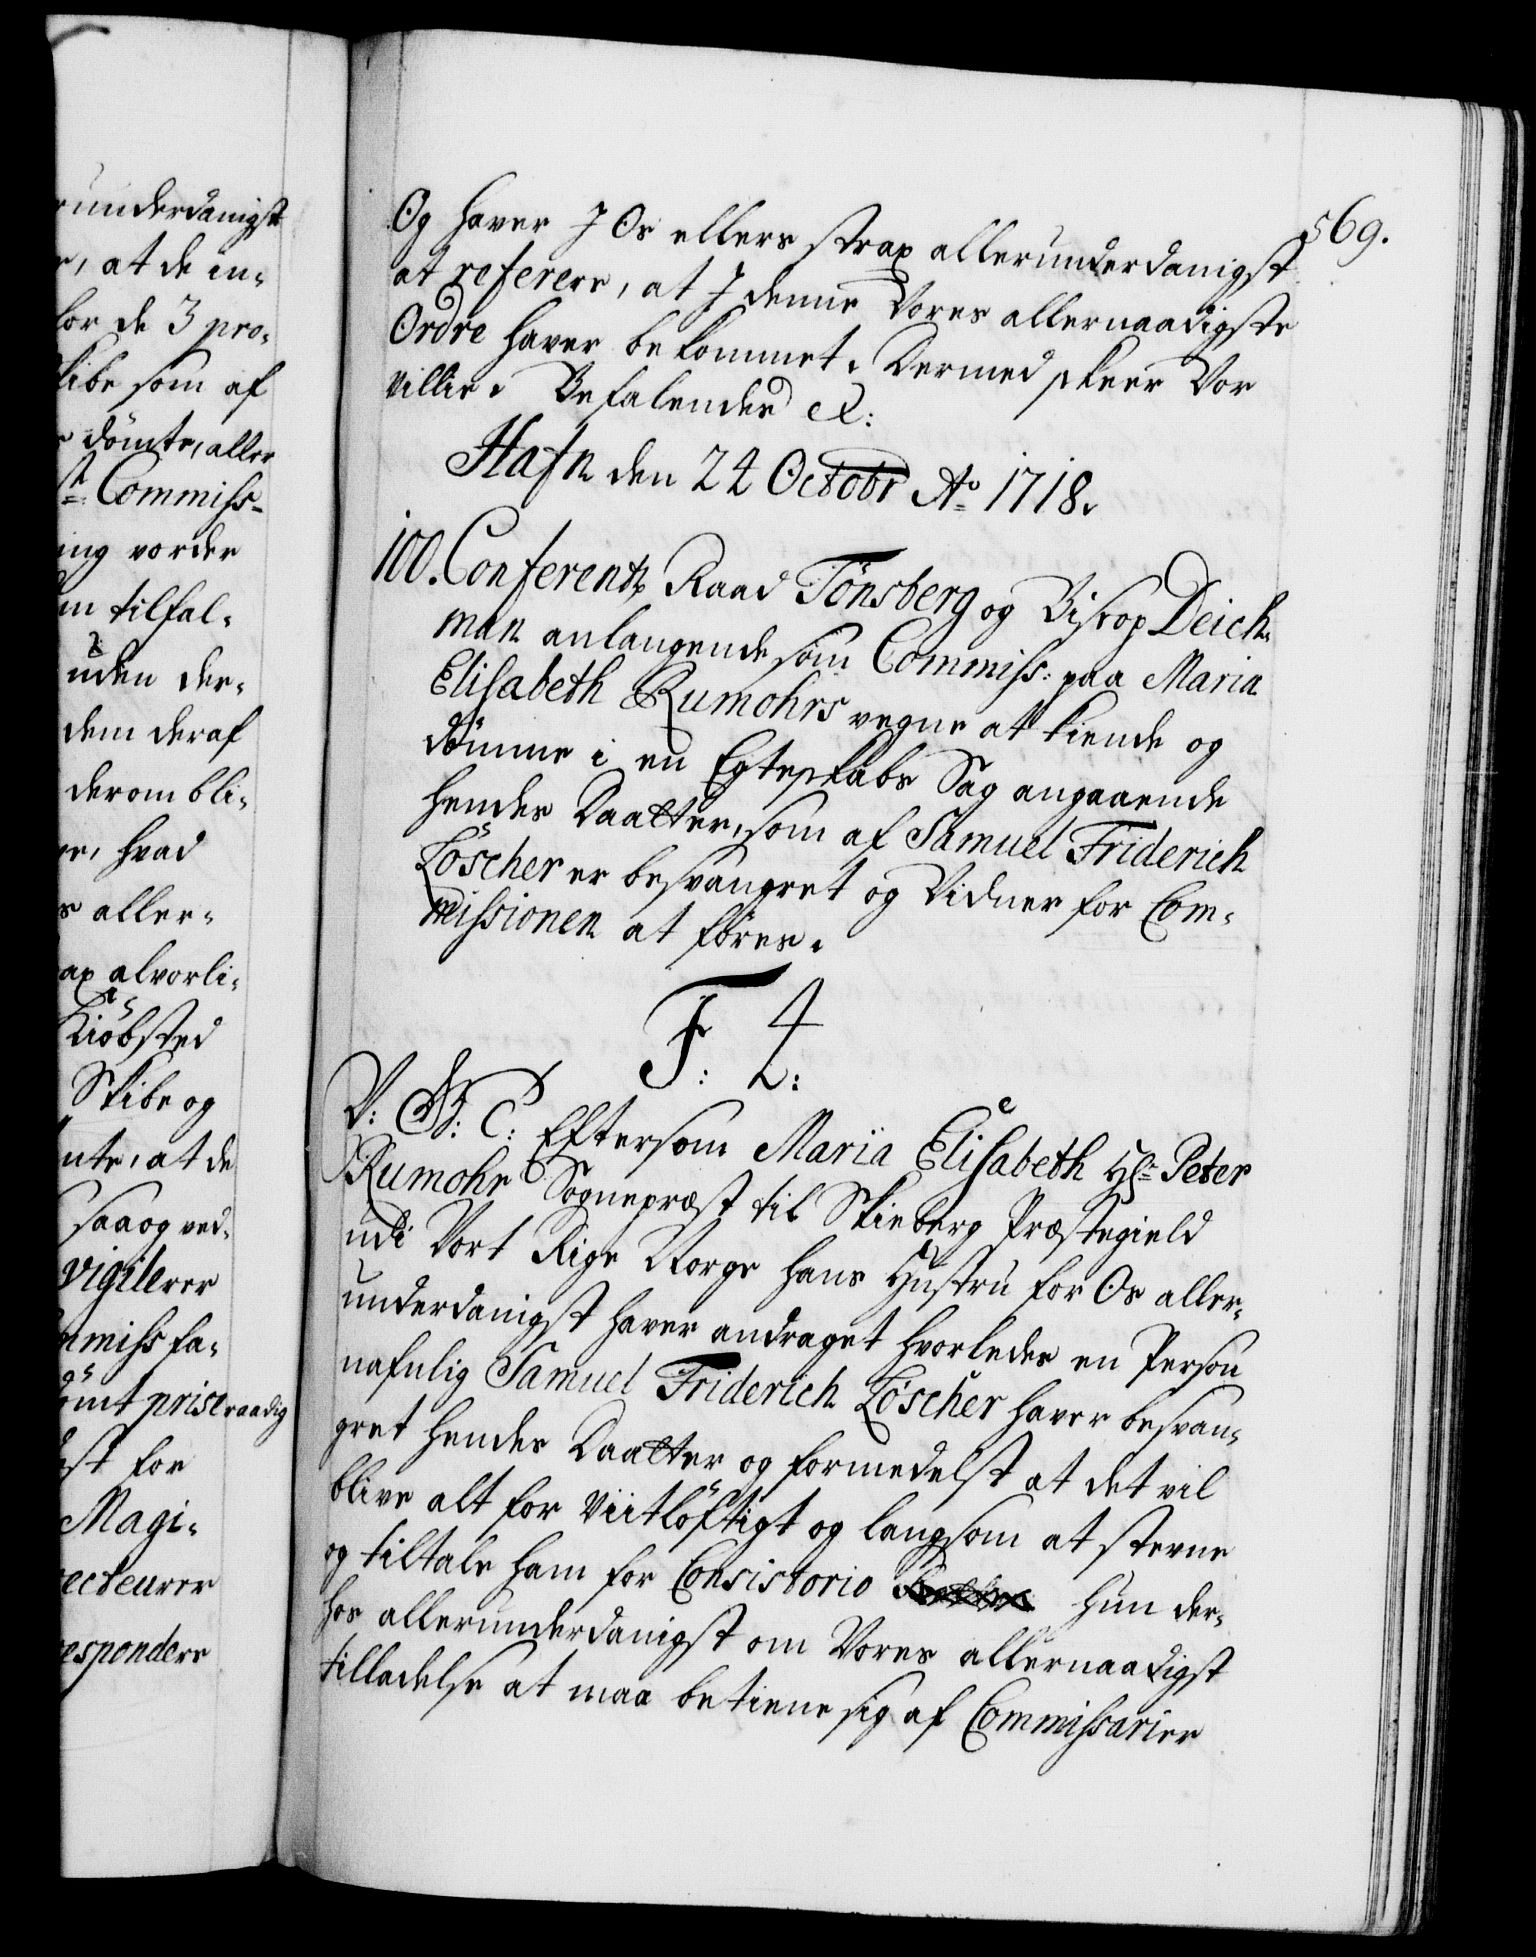 runderdanigst
r, at de in-
for de 3 pro-
kibe som af
e dömte, aller
st: Commiss-
ing vorder
en tilfal-
uden der-
dem deraf
derom bli-
er, hvad
s aller-
ax alvorli-
Kiöbsted
Skibe og
nte, at de
saa og ved-
vigilerer
mmiss fa-
ömt prise raadig
est for
Magi-
recteurer
responderer
569.
Og haver I Os ellers strax allerunderdanigst
at referere, at I denne Vores allernaadigste
Ordre haver bekommet. Dermed skeer Vor
villie. Befalendes &:
Hafn den 24 Octobr Ao 1718.
100. Conferentz Raad Tönsberg og Biscop Deich-
man anlangende som Commiss: paa Maria
Elisabeth Rumohrs vegne at kiende og
dömme i en Egteskabs Sag angaaende
hendes Daatter, som af Samuel Friderich
Löscher er besvangret og Vidner for Com-
missionen at föres.
F: 4:
V: G: C: Eftersom Maria Elisabeth Hr Peter
Rumohr Sognepræst til Skieberg Præstegield
udi Vort Rige Norge hans Hustru for Os aller-
underdanigst haver andraget hvorledes en Person
nafnlig Samuel Friderich Löscher haver besvan-
gret hendes Daatter og formedelst at det vil
blive alt for Viitlöftigt og langsom at stevne
og tiltale ham for Consistorio hun der-
hos allerunderdanigst om Vores allernaadigst
tilladelse at maa betiene sig af Commissarier